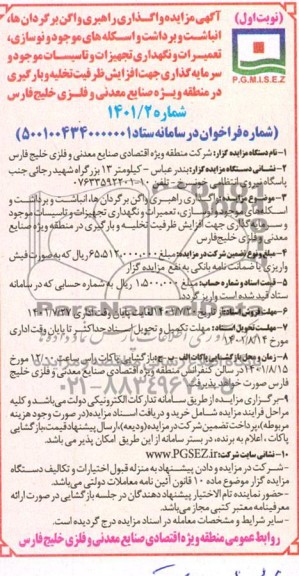 (نوبت اول)
آگهی مزایده واگذاری راهبری واگن برگردان ها،
انباشت و برداشت و اسکله های موجود و نوسازی،
تعمیرات و نگهداری تجهیزات و تاسیسات موجود و
سرمایه گذاری جهت افزایش ظرفیت تخلیه و بارگیری
در منطقه ویژه صنایع معدنی و فلزی خلیج فارس
P.G.M.I.S.E.Z
شماره ۱۴۰۱/۲
(شماره فراخوان در سامانه ستاد ۵۰۰۱۰۰۴۳۴۰۰۰۰۰۰۱)
۱-نام دستگاه مزایده گزار: شرکت منطقه ویژه اقتصادی صنایع معدنی و فلزی خلیج فارس
۲-نشانی دستگاه مزایده گزار: بندر عباس - کیلومتر ۱۳ بزرگراه شهید رجائی جنب
پاسگاه نیروی انتظامی خونسرخ - تلفن ۱۰-۰۷۶۳۳۵۹۲۲۰۱
۳-موضوع مزایده: واگذاری راهبری واگن برگردان ها، انباشت و برداشت و
اسکله های موجود و نوسازی، تعمیرات و نگهداری تجهیزات و تاسیسات موجود
و سرمایه گذاری جهت افزایش ظرفیت تخلیه و بارگیری در منطقه ویژه صنایع
معدنی و فلزی خلیج فارس
۴-مبلغ و نوع تضمین شرکت در مزایده: مبلغ ۶۵،۵۱۲،۰۰۰،۰۰۰ ریال که به صورت فیش
واریزی یا ضمانت نامه بانکی به نفع مزایده گزار
۵-قیمت اسناد و شماره حساب: مبلغ ۱،۵۰۰،۰۰۰ ریال به شماره حسابی که در سامانه
ستاد قید شده است واریز گردد
۶-مهلت فروش اسناد: تا پایان وقت اداری ۱۴۰۱/۷/۲۷
۷-مهلت تحویل اسناد: مهلت تکمیل و تحویل اسناد حداکثر تا پایان وقت اداری
مورخ ۱۴۰۲/۸/۱۴
۸-زمان و محل بازگشایی پاکات الف - ج: بازگشایی پاکات راس ساعت ۱۲:۰۰ مورخ
۱۴۰۱/۸/۱۵ در سالن کنفرانس منطقه ویژه اقتصادی صنایع معدنی و فلزی خلیج
فارس صورت خواهد پذیرفت
۹-برگزاری مزایده از طریق سامانه تدارکات الکترونیکی دولت می باشد و کلیه
مراحل فرایند مزایده شامل خرید و دریافت اسناد مزایده (در صورت وجود هزینه
مربوطه)، پرداخت تضمین شرکت در مزایده (ودیعه)، ارسال پیشنهاد قیمت، بازگشایی
پاکات، اعلام به برنده، در بستر سامانه از این طریق امکان پذیر می باشد.
۱۰-نشانی سایت شرکت: www.PGSEZ.ir
-شرکت در مزایده و دادن پیشنهاد به منزله قبول اختیارات و تکالیف دستگاه
مزایده گزار موضوع ماده ۱۰ قانون آئین نامه معاملات دولتی می باشد.
-حضور نماینده تام الاختیار پیشنهاد دهندگان در جلسه بازگشایی در صورت ارائه
معرفینامه معتبر کتبی مجاز می باشد.
-سایر شرایط و مشخصات معامله در اسناد مزایده درج گردیده است.
روابط عمومی منطقه ویژه اقتصادی صنایع معدنی و فلزی خلیج فارس